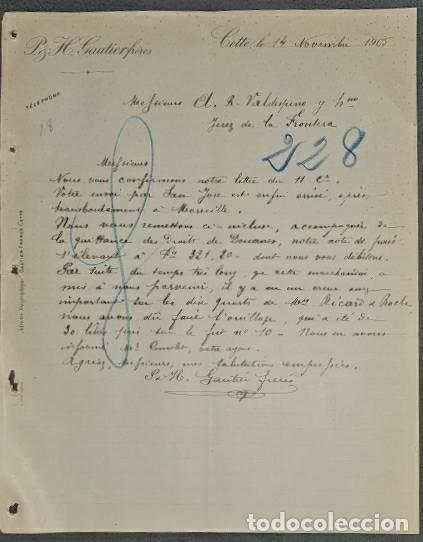 P. & H. Gautier frères
Cette, le 14 Novembre 1905
TÉLÉPHONE
18
Messieurs A. R. Valdespino y hno
Jerez de la Frontera
228
Messieurs
Nous vous confirmons notre lettre du 11 Ct.
Votre envoi par San José est enfin arrivé, après
transbordement à Marseille.
Nous vous remettons ci-incluse, accompagnée de
la quittance des Droits de Douanes, notre note de frais
s'élevant à Frs 321,20 - dont nous vous débitons.
Par suite du temps très long que cette marchandise a
mis à nous parvenir, il y a eu un creux assez
important sur les dix quarts de Mrs Ricard & Roche
nous avons dû faire l'ouillage, qui a été de
30 litres pris sur le fût no 10 - Nous en avons
informé Mr, votre agent.
Agréez, messieurs, nos salutations empressées.
P. & H. Gautier frères
todocoleccion.net